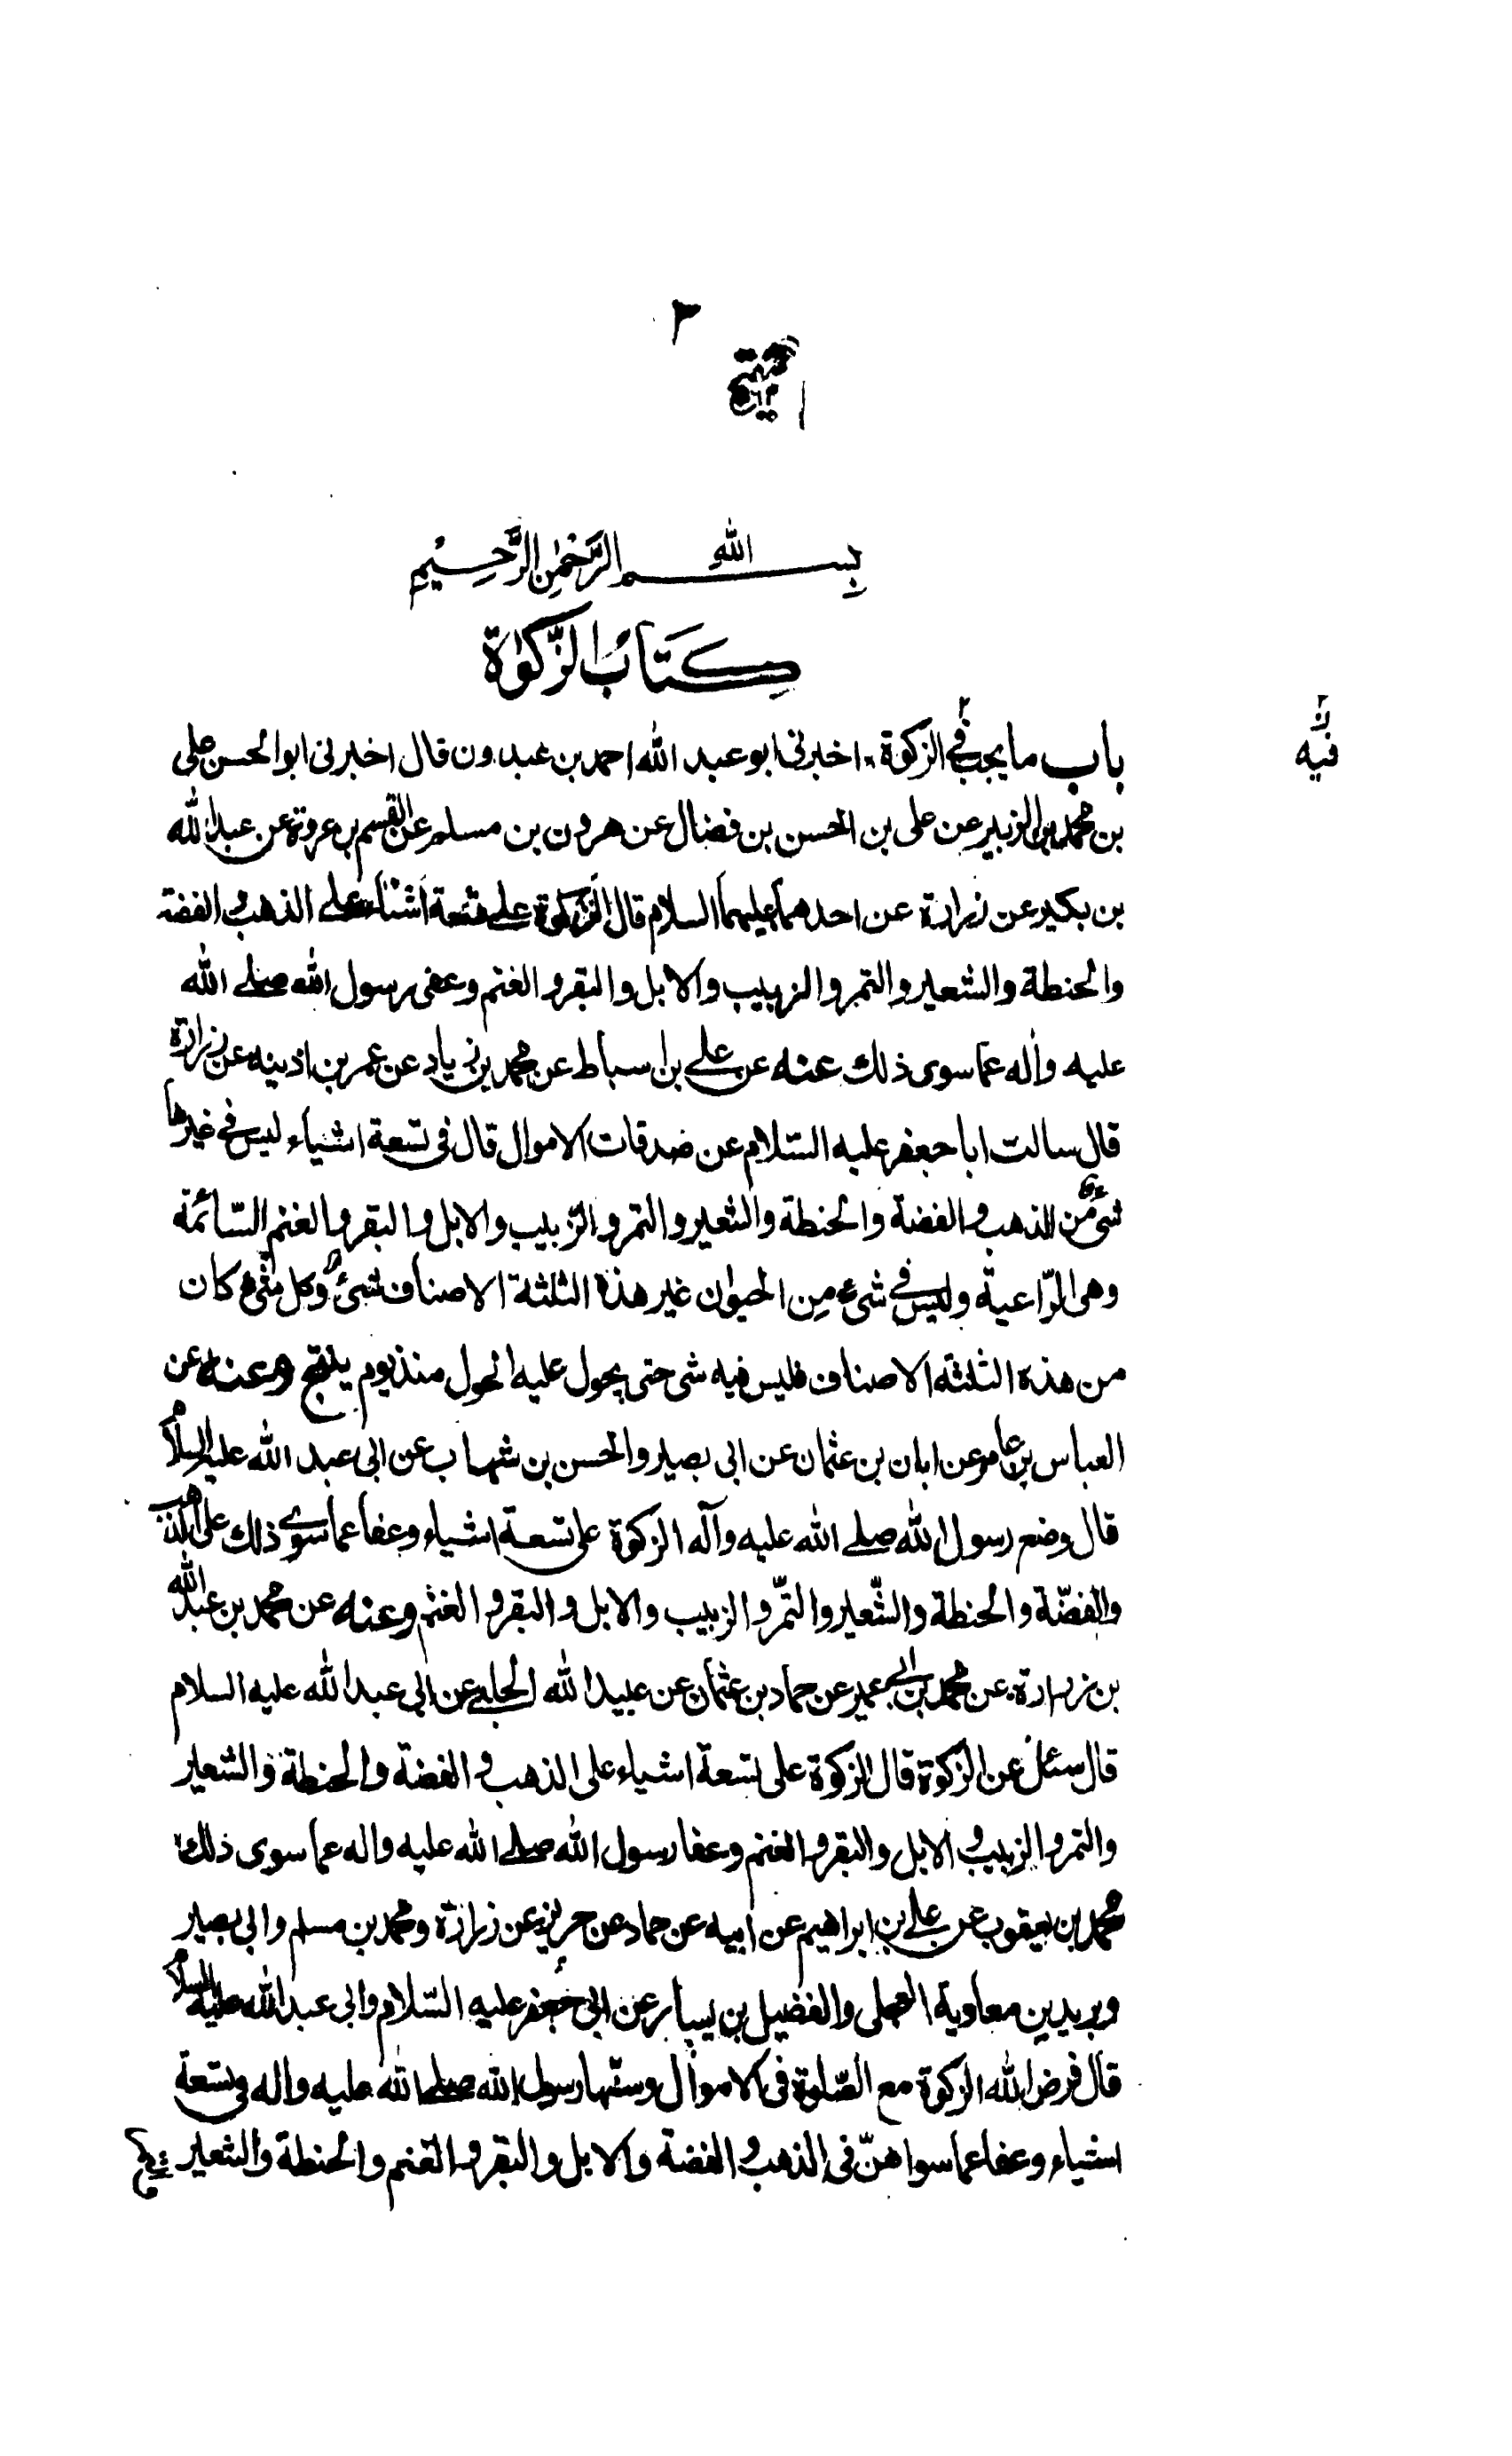 ٢
بسم الله الرَّحْمٰنِ الرَّحِيْمِ
كِتَابُ الزَّكوٰة
باب ما يجب في الزكوة اخبرنى ابو عبد الله احمد بن عبدون قال اخبرنى ابو الحسن على
فيه
بن محمد بن الزبير عن على بن الحسن بن فضال عن هرون بن مسلم عن القسم بن عروة عن عبد الله
بن بكير عن زرارة عن احدهما عليهما السلام قال الزكوة على تسعة اشياء على الذهب والفضة
والحنطة والشعير والتمر والزبيب والابل والبقر والغنم وعفى رسول الله صلى الله
عليه واله عما سوى ذلك عنه عن على بن اسباط عن محمد بن زياد عن عمر بن اذينه عن زرارة
قال سالت ابا جعفر عليه السّلام عن صدقات الاموال قال فى تسعة اشياء ليس في غيرها
شئ من الذهب والفضة والحنطة والشعير والتمر والزّبيب والابل والبقر والغنم السّائمة
وهى الرّاعية وليس في شئ من الحيوان غير هذه الثلثة الاصناف شئ وكل شئ كان
من هذه الثلثة الاصناف فليس فيه شى حتى يحول عليه الحول منذ يوم ينتج وعنه عن
العباس بن عامر عن ابان بن عثمان عن ابى بصير والحسن بن شهاب عن ابى عبد الله عليه السلام
قال وضع رسول الله صلى الله عليه وآله الزكوة على تسعة اشياء وعفا عما سوى ذلك على الذهب
والفضّة والحنطة والشّعير والتمّر والزبيب والابل والبقر والغنم وعنه عن محمد بن عبد الله
بن زرارة عن محمد بن ابى عمير عن حماد بن عثمان عن عبيد الله الحلبى عن ابى عبد الله عليه السلام
قال سئل عن الزكوة قال الزكوة على تسعة اشياء على الذهب والفضة والحنطة والشعير
والتمر والزبيب والابل والبقر والغنم وعفا رسول الله صلى الله عليه واله عما سوى ذلك
محمد بن يعقوب عن على بن ابراهيم عن ابيه عن حماد عن حريز عن زرارة ومحمد بن مسلم وابى بصير
وبريد بن معاوية العجلى والفضيل بن يسار عن ابى جعفر عليه السّلام وابى عبد الله عليه السلام
قال فرض الله الزكوة مع الصّلوة فى الاموال وسنّها رسول الله صلى الله عليه واله فى تسعة
اشياء وعفا عما سواهنّ فى الذهب والفضة والابل والبقر والغنم والحنطة والشعير